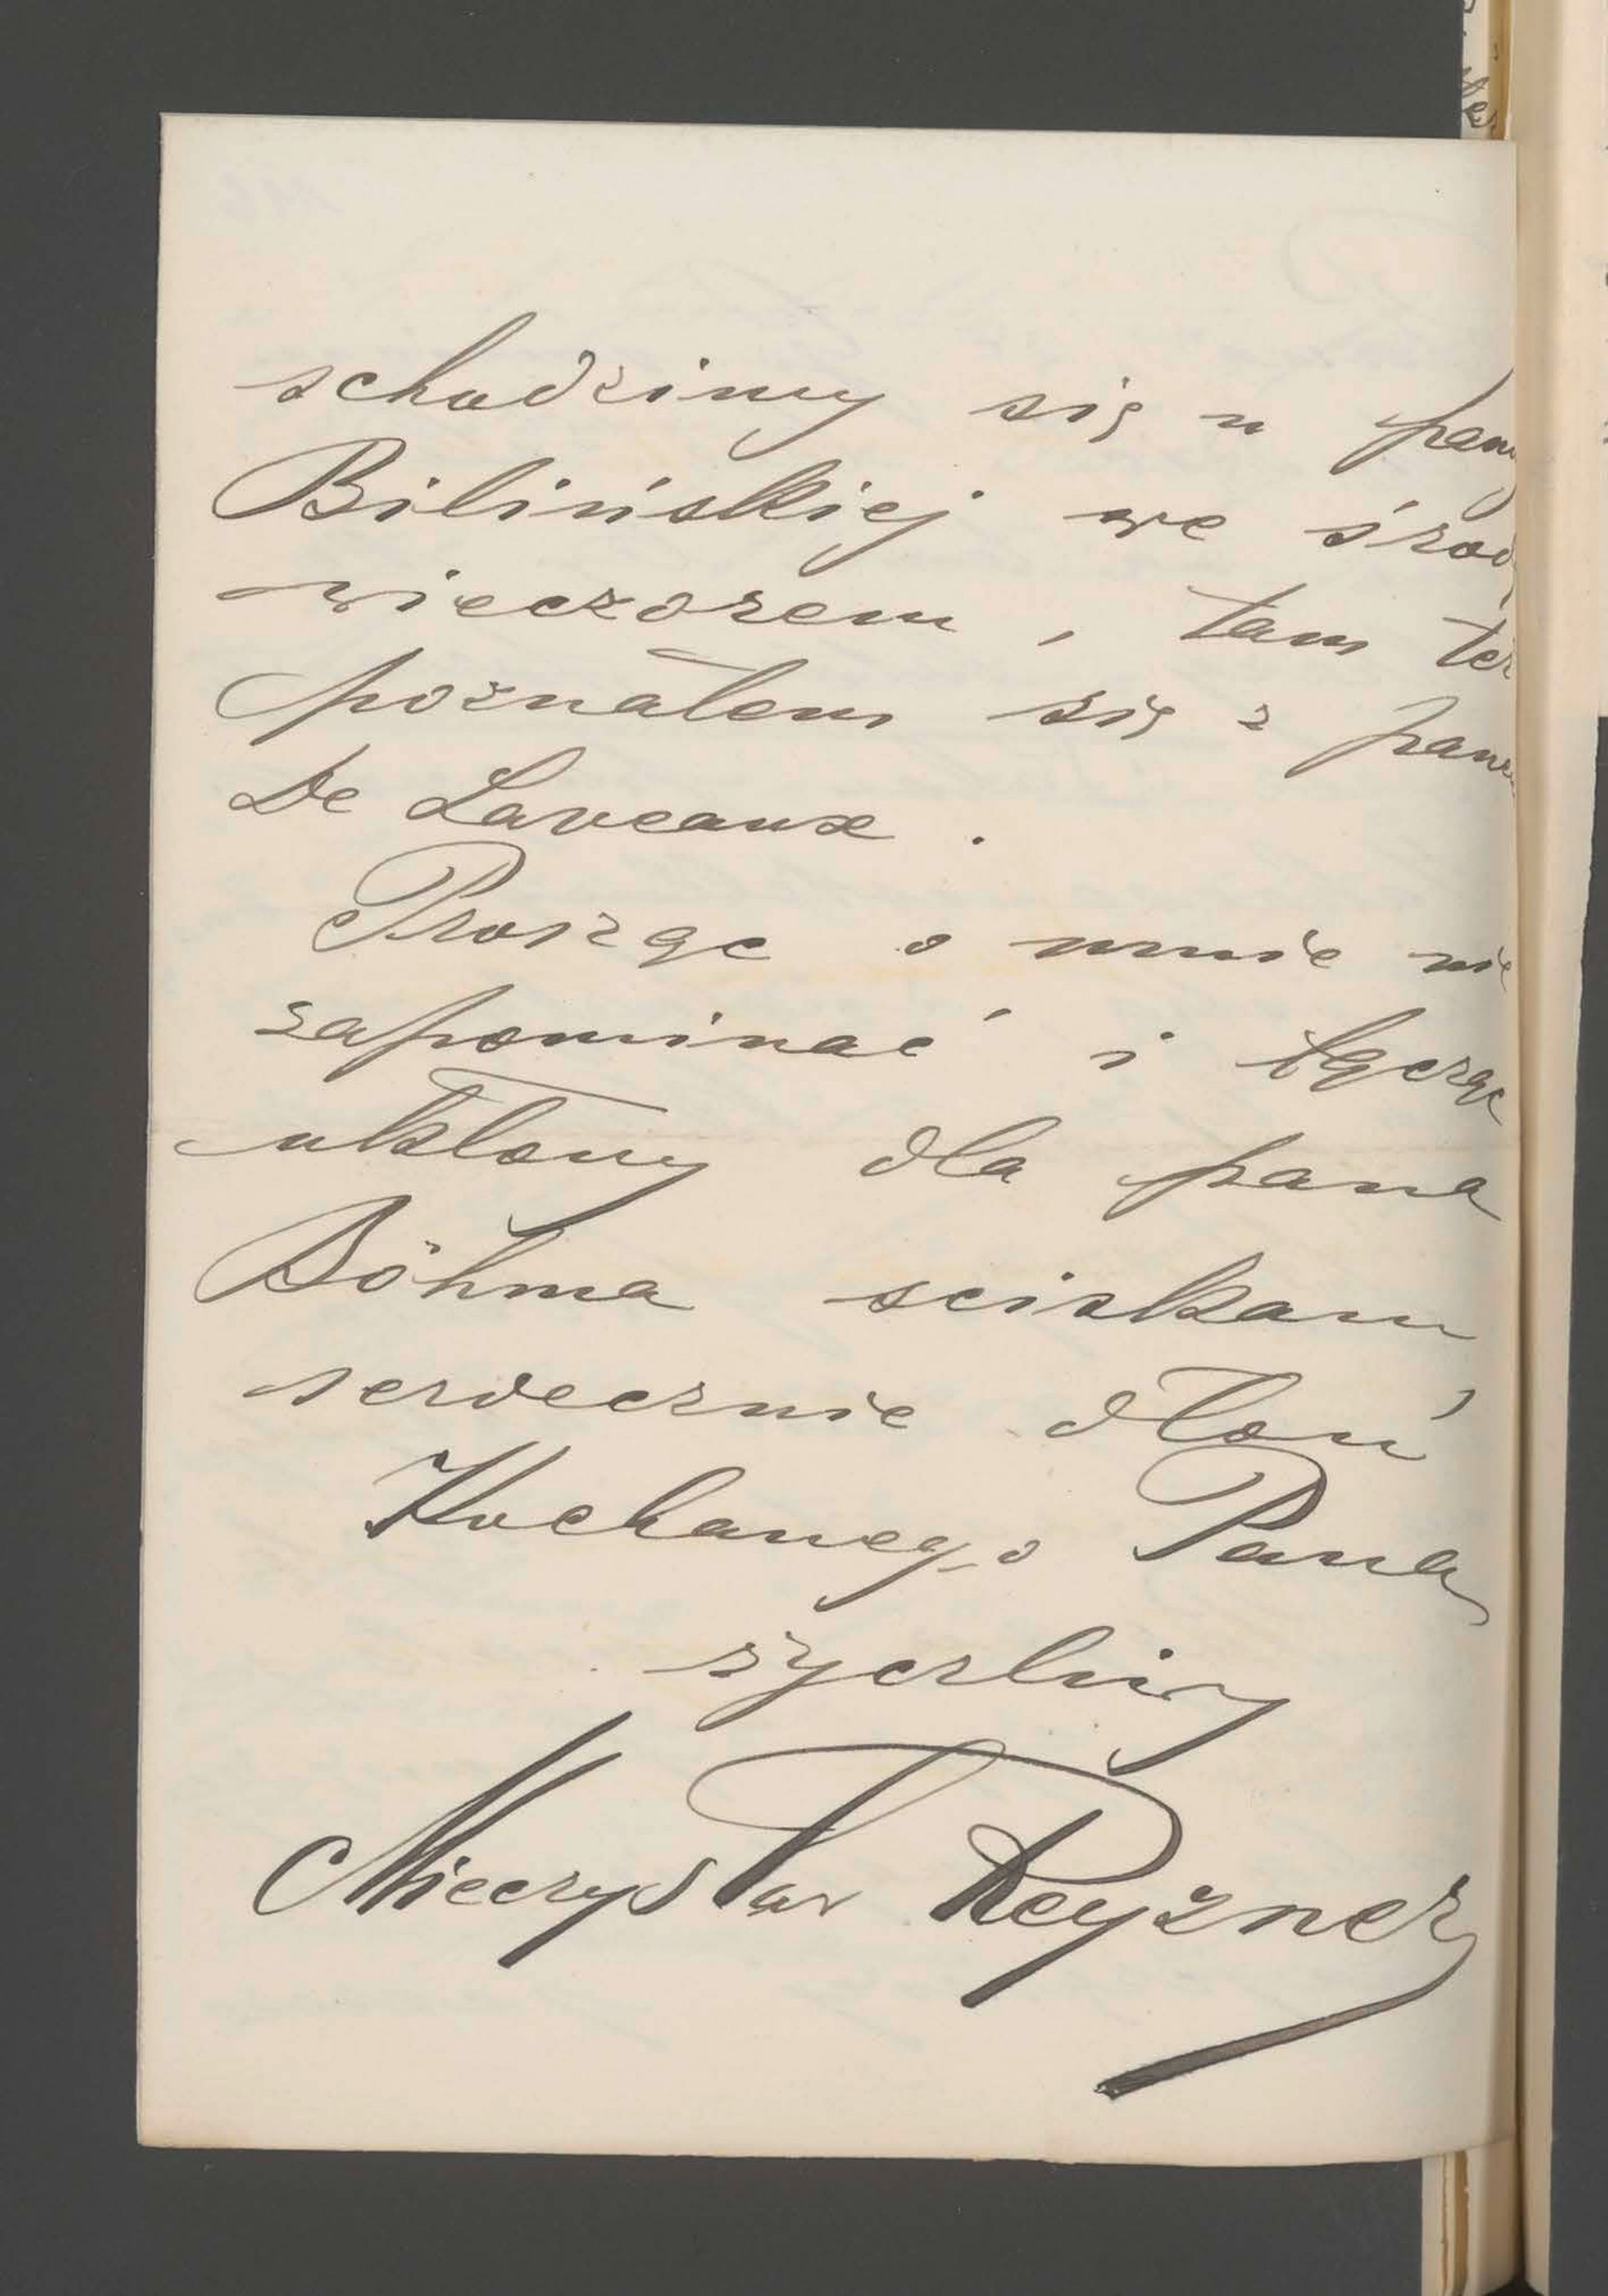 schodzimy się u panny
Bilińskiej we środy
wieczorem, tam też
poznałem się z panem
De Laveaux.
Prosząc o mnie nie
zapominać i łącząc
ukłony dla pana
Böhma sciskam
serdecznie dłoń
Kochanego Pana
życzliwy
Mieczysław Reyzner